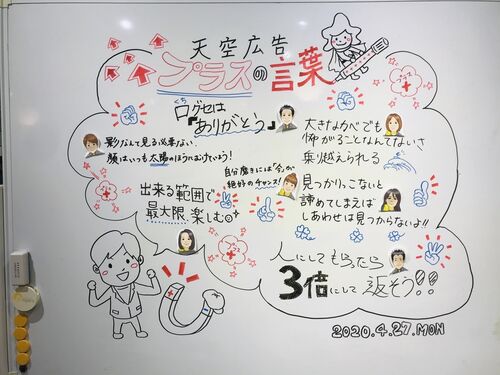 天空広告
プラスの言葉
口グセは
くち
『ありがとう』
影なんて見る必要ない。
顔はいつも太陽のほうにむけていよう!
大きなカベでも
怖がることなんてないさ
乗り越えられる
自分磨きには「今」が
絶好のチャンス!
出来る範囲で
最大限 楽しむ
見つかりっこないと
諦めてしまえば
しあわせは見つからないよ!!
人にしてもらったら
3倍にして 返そう!!
プラス
プラス
プラス
2020.4.27.MON